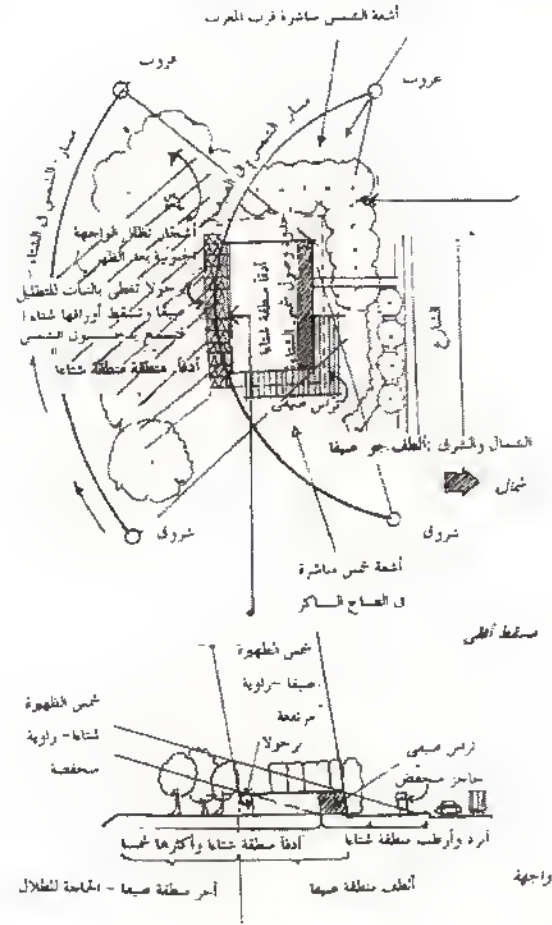 أشعة الشمس مباشرة قرب المغرب
غروب
غروب
مسار الشمس في
مسار الشمس في الشتاء
أشجار تظلل الواجهة
الجنوبية بعد الظهر
تغطى بالنبات للتظليل
صيفا وتسقط أوراقها شتاءا
الشمس
أدفأ منطقة شتاءا
أدفأ منطقة شتاءا
تراس صيفى
الشارع
الشمال والشرق : ألطف جو صيفا
شمال
شروق
شروق
أشعة شمس مباشرة
فى الصباح الباكر
مسقط أفقى
شمس الظهيرة
صيفا - زاوية
مرتفعة
شمس الظهيرة
شتاءا - زاوية
منخفضة
برجولا
تراس صيفى
حاجز منخفض
أدفأ منطقة شتاءا وأكثرها شمسا
أبرد وأرطب منطقة شتاءا
أحر منطقة صيفا - الحاجة للظلال
ألطف منطقة صيفا
واجهة